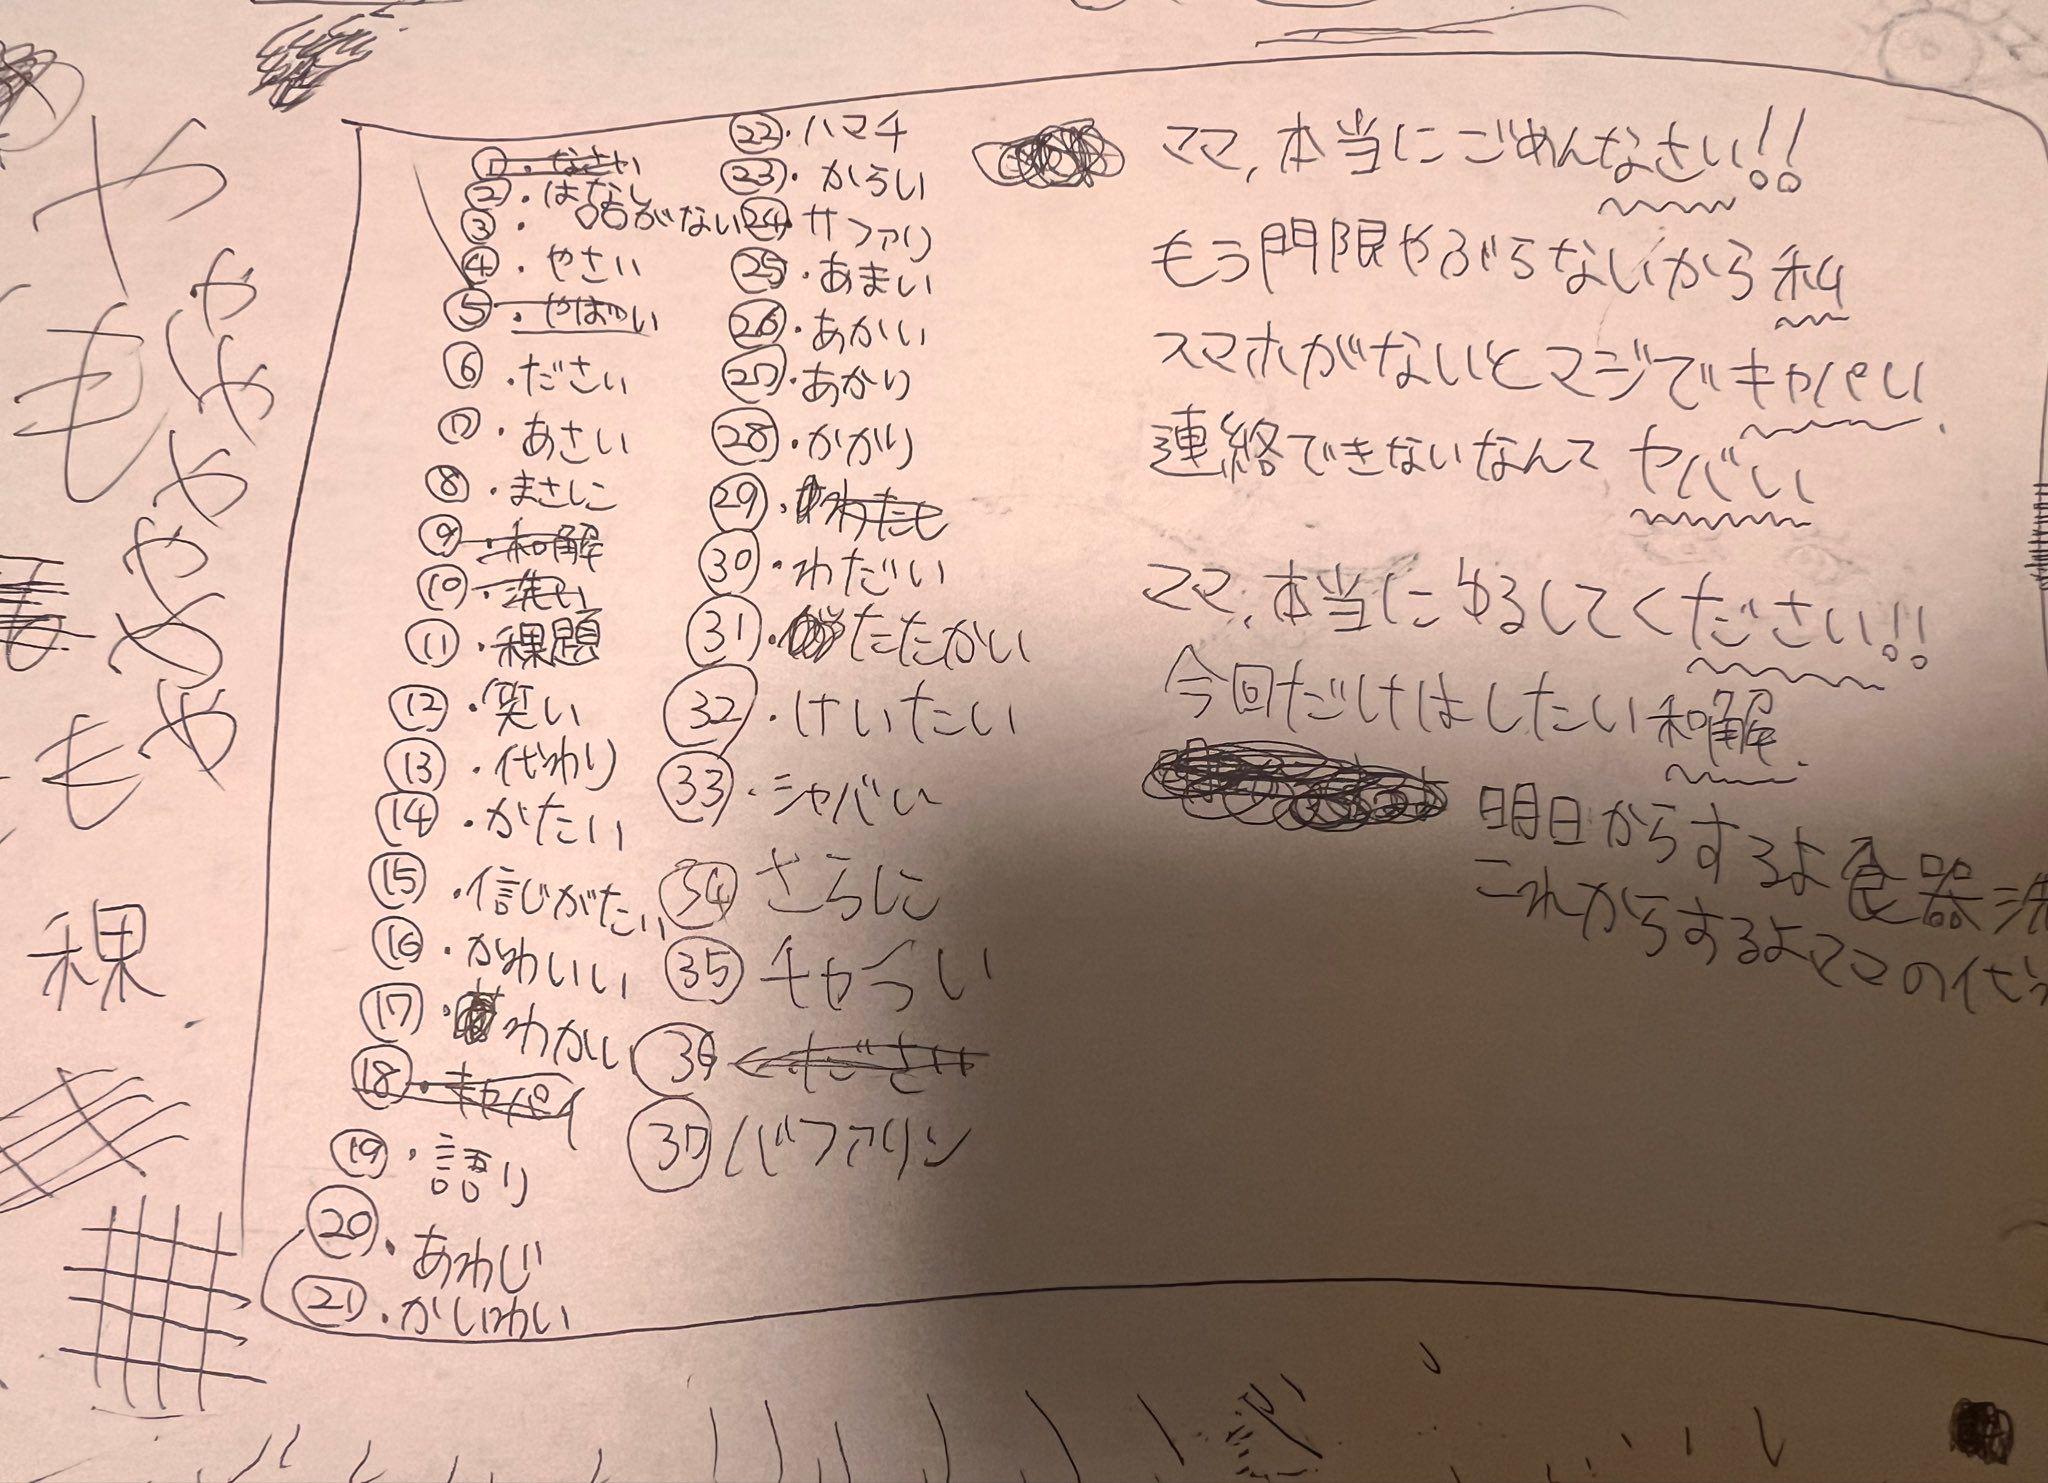 や
も
や
や
や
や
め
や
も
稞
①・なさい
②・はなし
③・〇〇がない
④・やさい
⑤・やばい
⑥・ださい
⑦・あさい
⑧・まさしこ
⑨・和解
⑩・洗い
⑪・稞題
⑫・笑い
⑬・代わり
⑭・がたい
⑮・信じがたい
⑯・かわいい
⑰・わかい
⑱・キャパイ
⑲・語り
⑳・あわじ
㉑・かいわい
㉒・ハマチ
㉓・からい
㉔・サファリ
㉕・あまい
㉖・あかい
㉗・あかり
㉘・かかり
㉙・わたし
㉚・わだい
㉛・たたかい
㉜・けいたい
㉝・シャバい
㉞さらに
㉟チャラい
㊱ださい
㊲バファリン
ママ,本当にごめんなさい!!
もう門限やぶらないから私
スマホがないとマジでキャパい.
連絡できないなんてヤバい
ママ,本当にゆるしてください!!
今回だけはしたい和解.
明日からするよ食器洗
これからするよママの代わ